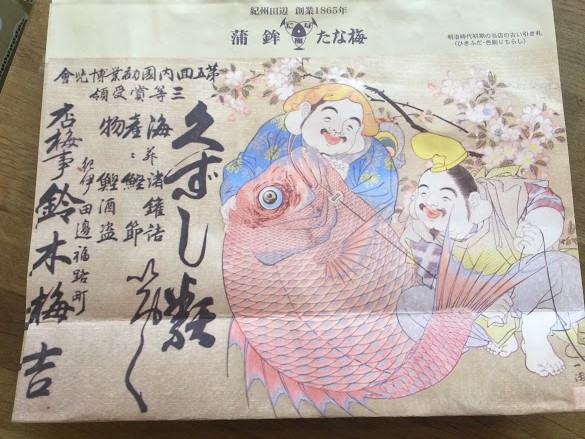 紀州田辺 創業1865年
蒲鉾 たな梅
明治時代初期の当店の古い引き札
(ひきふだ・色刷りちらし)
第五回内國勧業博覧會
三等賞受領
久ずし類
いろ〱
海産物
并諸鑵詰
鰹節
鰹酒盗
紀伊田邊福路町
杏梅事鈴木梅吉